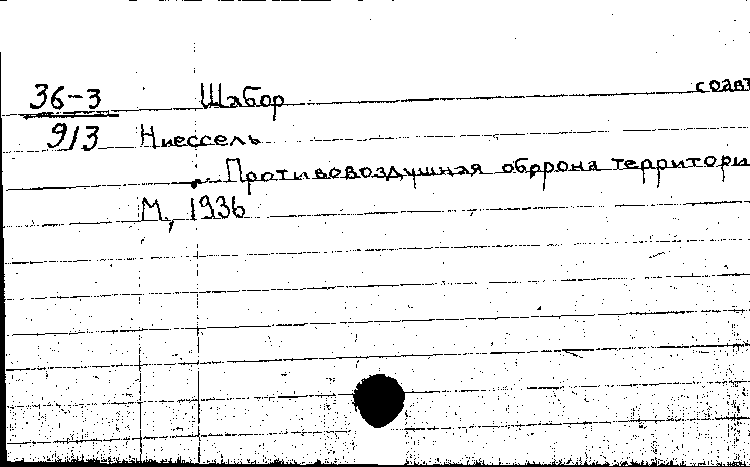 36-3 Шабор соавт
913 Ниессель
Противовоздушная оборона территори
М, 1936